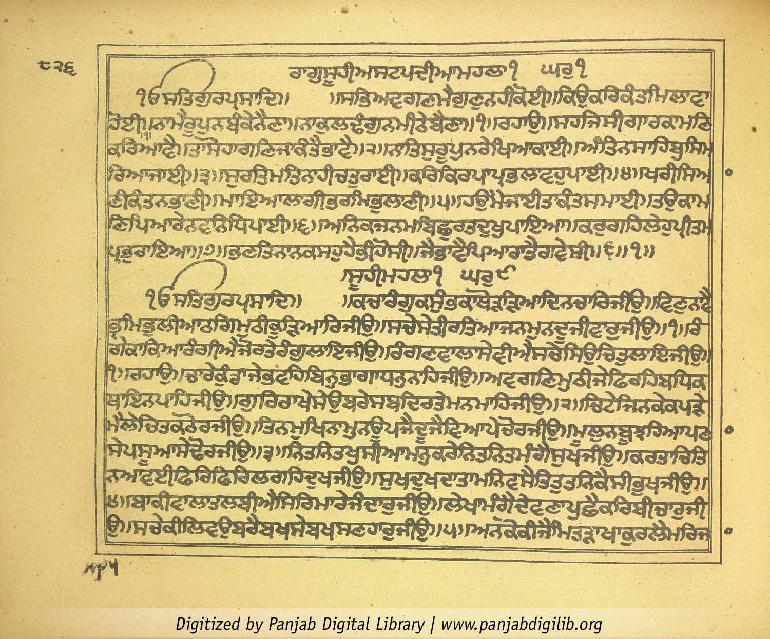 ੮੨੬
ਰਾਗੁਸੂਹੀਅਸਟਪਦੀਆਮਹਲਾ੧ ਘਰੁ੧
ੴਸਤਿਗੁਰਪ੍ਰਸਾਦਿ॥ ॥ਸਭਿਅਵਗਣਮੈਗੁਣੁਨਹੀਕੋਈ॥ਕਿਉਕਰਿਕੰਤਮਿਲਾਵਾ
ਹੋਈ॥੧॥ਨਾਮੈਰੂਪੁਨਬੰਕੇਨੈਣਾ॥ਨਾਕੁਲਢੰਗੁਨਮੀਠੇਬੈਣਾ॥੧॥ਰਹਾਉ॥ਸਹਜਿਸੀਗਾਰਕਾਮਣਿ
ਕਰਿਆਵੈ॥ਤਾਸੋਹਾਗਣਿਜਾਕੰਤੈਭਾਵੈ॥੨॥ਨਾਤਿਸੁਰੂਪੁਨਰੇਖਿਆਕਾਈ॥ਅੰਤਿਨਸਾਹਿਬੁਸਿਮ
ਰਿਆਜਾਈ॥੩॥ਸੁਰਤਿਮਤਿਨਾਹੀਚਤੁਰਾਈ॥ਕਰਿਕਿਰਪਾਪ੍ਰਭਲਾਵਹੁਪਾਈ॥੪॥ਖਰੀਸਿਆ
ਣੀਕੰਤਨਭਾਣੀ॥ਮਾਇਆਲਾਗੀਭਰਮਿਭੁਲਾਣੀ॥੫॥ਹਉਮੈਜਾਈਤਾਕੰਤਸਮਾਈ॥ਤਉਕਾਮ
ਣਿਪਿਆਰੇਨਵਨਿਧਿਪਾਈ॥੬॥ਅਨਿਕਜਨਮਬਿਛੁਰਤਦੁਖੁਪਾਇਆ॥ਕਰੁਗਹਿਲੇਹੁਪ੍ਰੀਤਮ
ਪ੍ਰਭਰਾਇਆ॥੭॥ਭਣਤਿਨਾਨਕਸਹੁਹੈਭੀਹੋਸੀ॥ਜੈਭਾਵੈਪਿਆਰਾਤੈਰਾਵੇਸੀ॥੮॥੧॥
ਸੂਹੀਮਹਲਾ੧ ਘਰੁ੯
ੴਸਤਿਗੁਰਪ੍ਰਸਾਦਿ॥ ॥ਕਚਾਰੰਗੁਕਸੁੰਭਕਾਥੋੜੜਿਆਦਿਨਚਾਰਿਜੀਉ॥ਵਿਣੁਨਾਵੈ
ਭ੍ਰਮਿਭੁਲੀਆਠਗਿਮੁਠੀਕੂੜਿਆਰਿਜੀਉ॥ਸਚੇਸੇਤੀਰਤਿਆਜਨਮੁਨਦੂਜੀਵਾਰਜੀਉ॥੧॥ਰੰ
ਗੇਕਾਕਿਆਰੰਗੀਐਜੋਰਤੇਰੰਗੁਲਾਇਜੀਉ॥ਰੰਗਣਵਾਲਾਸੇਵੀਐਸਚੇਸਿਉਚਿਤੁਲਾਇਜੀਉ॥
੧॥ਰਹਾਉ॥ਚਾਰੇਕੁੰਡਾਜੇਭਵਹਿਬਿਨੁਭਾਗਾਧਨੁਨਾਹਿਜੀਉ॥ਅਵਗਣਿਮੁਠੀਜੇਫਿਰਹਿਬਧਿਕ
ਥਾਇਨਪਾਹਿਜੀਉ॥ਗੁਰਿਰਾਖੇਸੇਉਬਰੇਸਬਦਿਰਤੇਮਨਮਾਹਿਜੀਉ॥੨॥ਚਿਟੇਜਿਨਕੇਕਪੜੇ
ਮੈਲੇਚਿਤਕਠੋਰਜੀਉ॥ਤਿਨਮੁਖਿਨਾਮੁਨਊਪਜੈਦੂਜੈਵਿਆਪੇਚੋਰਜੀਉ॥ਮੂਲੁਨਬੂਝਹਿਆਪਣਾ
ਸੇਪਸੂਆਸੇਢੋਰਜੀਉ॥੩॥ਨਿਤਨਿਤਖੁਸੀਆਮਨੁਕਰੇਨਿਤਨਿਤਮੰਗੈਸੁਖਜੀਉ॥ਕਰਤਾਚਿਤਿ
ਨਆਵਈਫਿਰਿਫਿਰਿਲਗਹਿਦੁਖਜੀਉ॥ਸੁਖਦੁਖਦਾਤਾਮਨਿਵਸੈਤਿਤੁਤਨਿਕੈਸੀਭੁਖਜੀਉ॥
੪॥ਬਾਕੀਵਾਲਾਤਲਬੀਐਸਿਰਿਮਾਰੇਜੰਦਾਰੁਜੀਉ॥ਲੇਖਾਮੰਗੈਦੇਵਣਾਪੁਛੈਕਰਿਬੀਚਾਰੁਜੀ
ਉ॥ਸਚੇਕੀਲਿਵਉਬਰੇਬਖਸੇਬਖਸਣਹਾਰੁਜੀਉ॥੫॥ਅਨਕੋਕੀਜੈਮਿਤੜਾਖਾਕੁਰਲੈਮਰਿਜ
Digitized by Panjab Digital Library | www.panjabdigilib.org